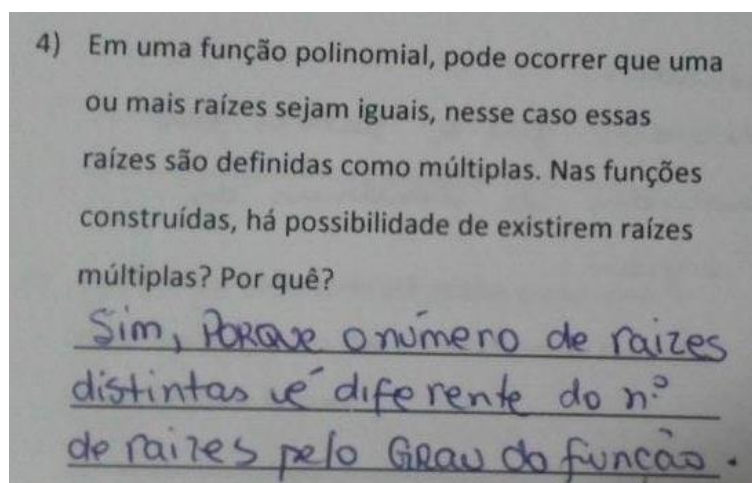 4) Em uma função polinomial, pode ocorrer que uma
ou mais raízes sejam iguais, nesse caso essas
raízes são definidas como múltiplas. Nas funções
construídas, há possibilidade de existirem raízes
múltiplas? Por quê?
Sim, PORQUE o número de raizes
distintas é diferente do nº
de raizes pelo GRAU da função.